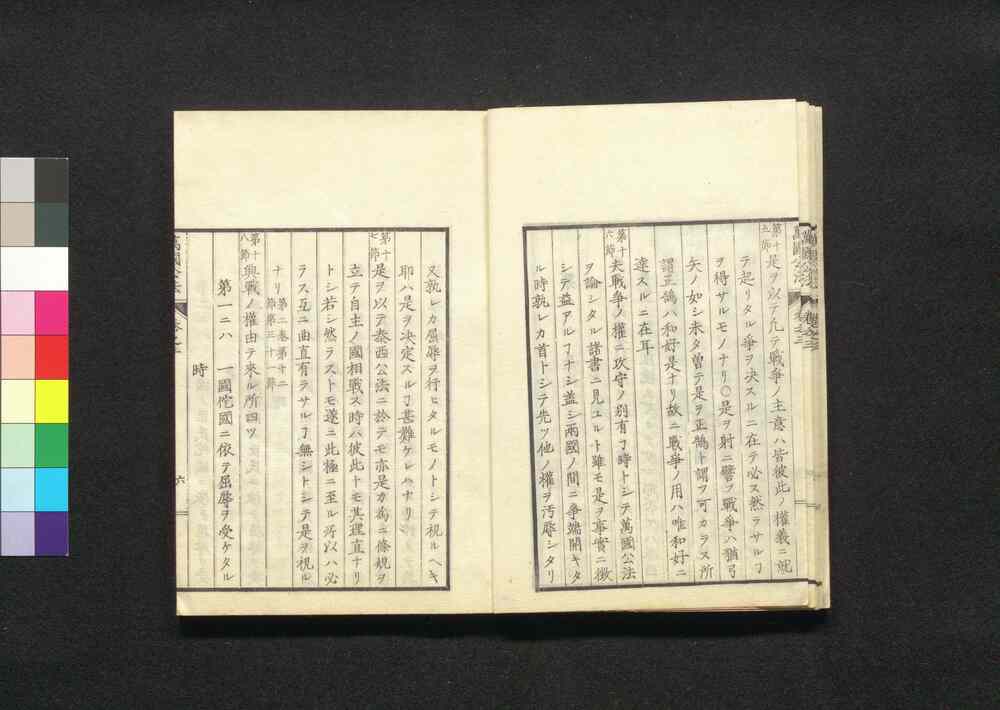 第十五節 是ヲ以テ凢テ戰爭ノ主意ハ皆彼此ノ權義ニ就
テ起リタル爭ヲ决スルニ在テ必ス然ラサルヿ
ヲ得サルモノナリ○是ヲ射ニ譬ヲ戰爭ハ猶弓
矢ノ如シ未タ曽テ是ヲ正鵠ト謂フ可カラス所
謂正鵠ハ和好是ナリ故ニ戰爭ノ用ハ唯和好ニ
達スルニ在耳
第十六節 夫戰爭ノ權ニ攻守ノ別有ヿ時トシテ萬國公法
ヲ論シタル諸書ニ見ユルト雖モ是ヲ事實ニ徴
シテ益アルヿナシ盖シ兩國ノ間ニ爭端開キタ
ル時孰レカ首トシテ先ツ他ノ權ヲ汚辱シタリ
又孰レカ屈辱ヲ行ヒタルモノトシテ視ルヘキ
耶ハ是ヲ决定スルヿ甚難ケレハナリ
第十七節 是ヲ以テ泰西公法ニ於テモ亦是カ爲ニ條規ヲ
立テ自主ノ國相戰ス時ハ彼此トモ其理直ナリ
トシ若シ然ラストモ遂ニ此極ニ至ル所以ハ必
ラス互ニ曲直有ラサルヿ無シトシテ是ヲ視ル
ナリ 第二卷第十二節第三十一節
第十八節 興戰ノ權由テ來ル所四ツ
第一ニハ 一國佗國ニ依テ屈辱ヲ受ケタル
時
萬國公法
卷之三
六